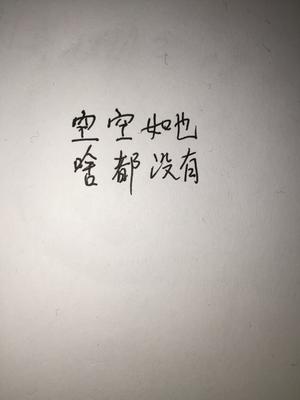 空空如也
啥都没有